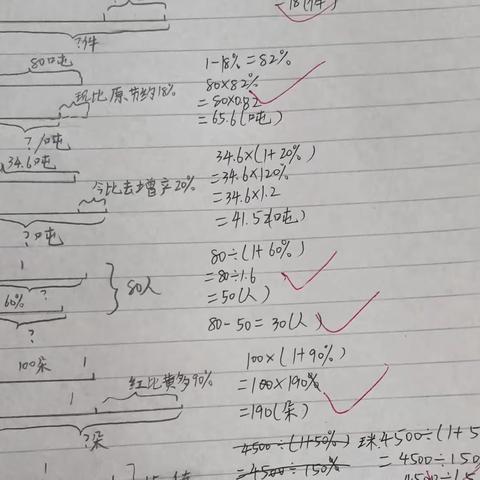 =18(件)
?件
80吨
现比原节约18%
?/吨
1-18%=82%
80×82%
=80×0.82
=65.6(吨)
34.6吨
今比去增产20%
?吨
34.6×(1+20%)
=34.6×120%
=34.6×1.2
=41.52(吨)
1
60%
?
?
80人
80÷(1+60%)
=80÷1.6
=50(人)
80-50=30(人)
100朵
1
红比黄多90%
1
?朵
100×(1+90%)
=100×190%
=190(朵)
4500÷(1+50%)
=4500÷150%
4500÷(1+5
=4500÷150
4500÷1.5
1